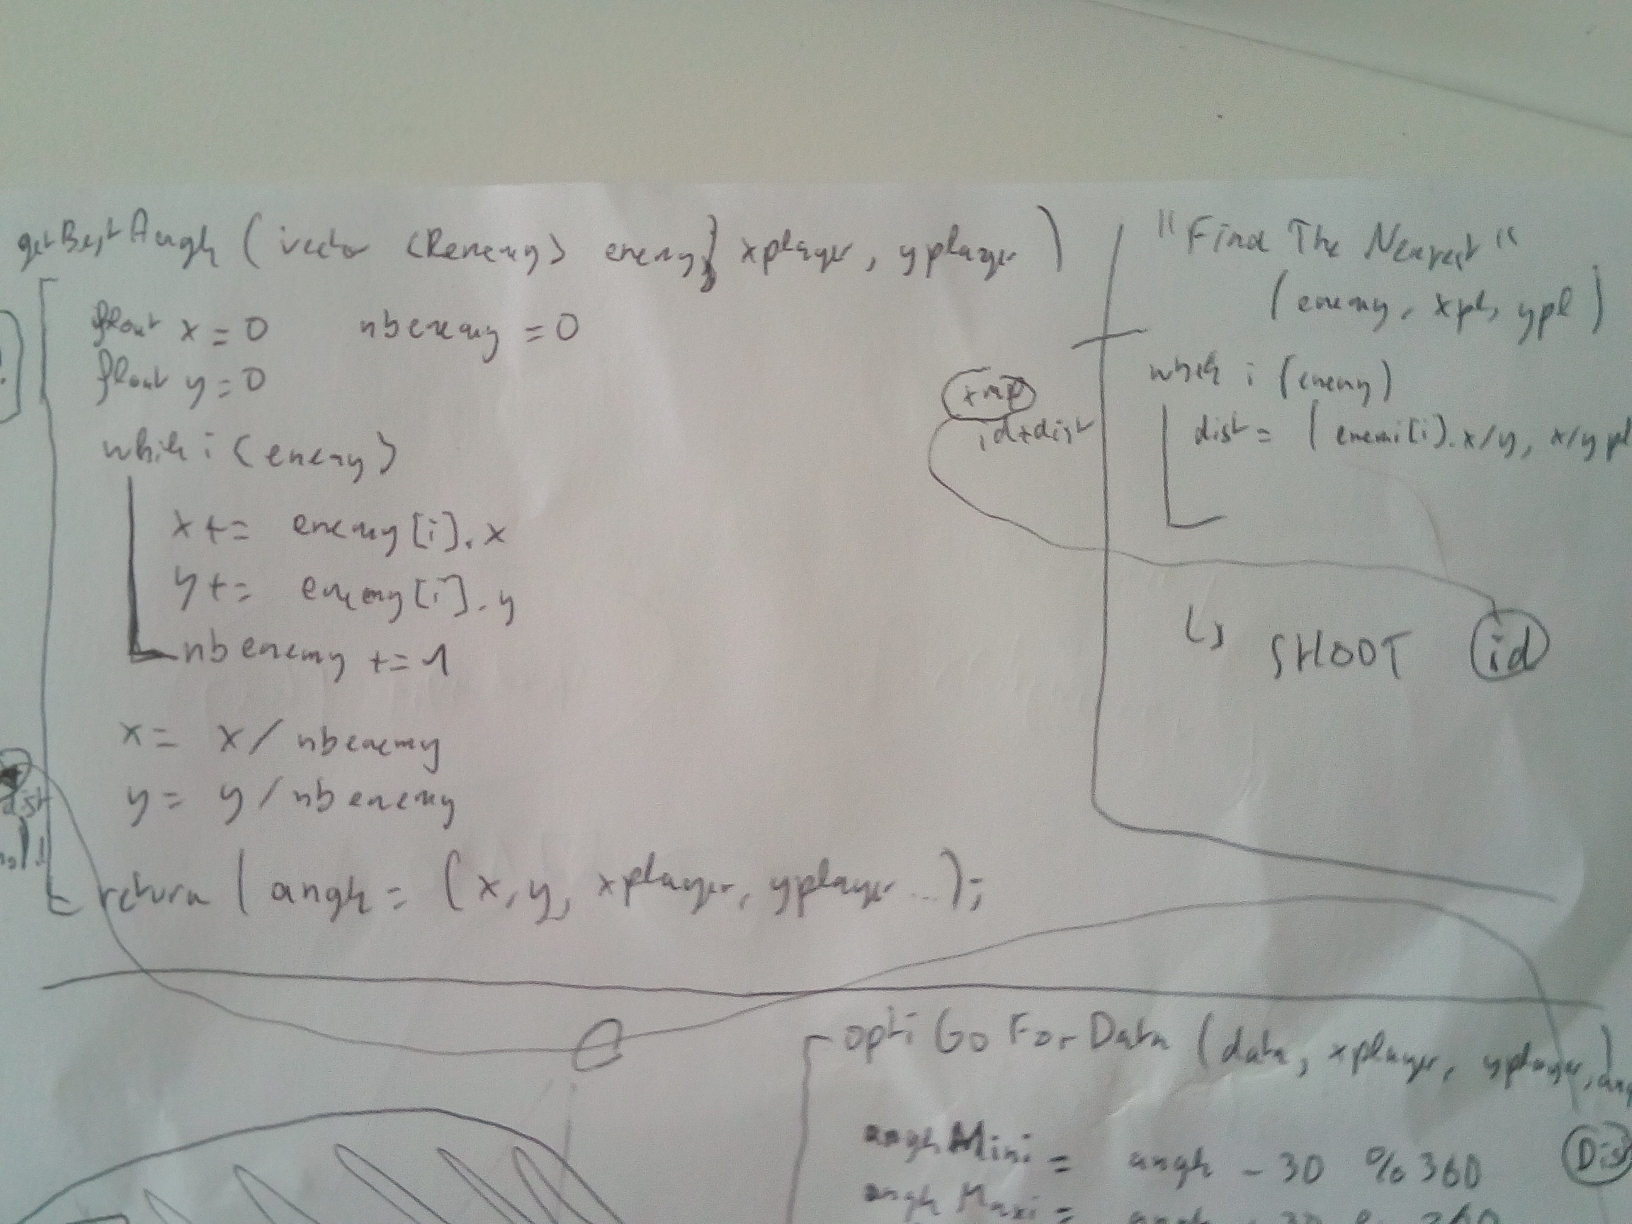 getBestAngle (vector <Renemy> enemy} xplayer, yplayer)
float x = 0 nbenemy = 0
float y = 0
while i (enemy)
x += enemy[i].x
y += enemy[i].y
nbenemy += 1
x = x / nbenemy
y = y / nbenemy
return (angle = (x, y, xplayer, yplayer ...);
"Find The Nearest"
(enemy, xpl, ypl)
while i (enemy)
dist = (enemi[i).x/y, x/y pl
tmp
id+dist
↳ SHOOT id
dist
opti Go For Data (data, xplayer, yplayer, ang
angle Mini = angle - 30 % 360
Dis
angle Maxi =